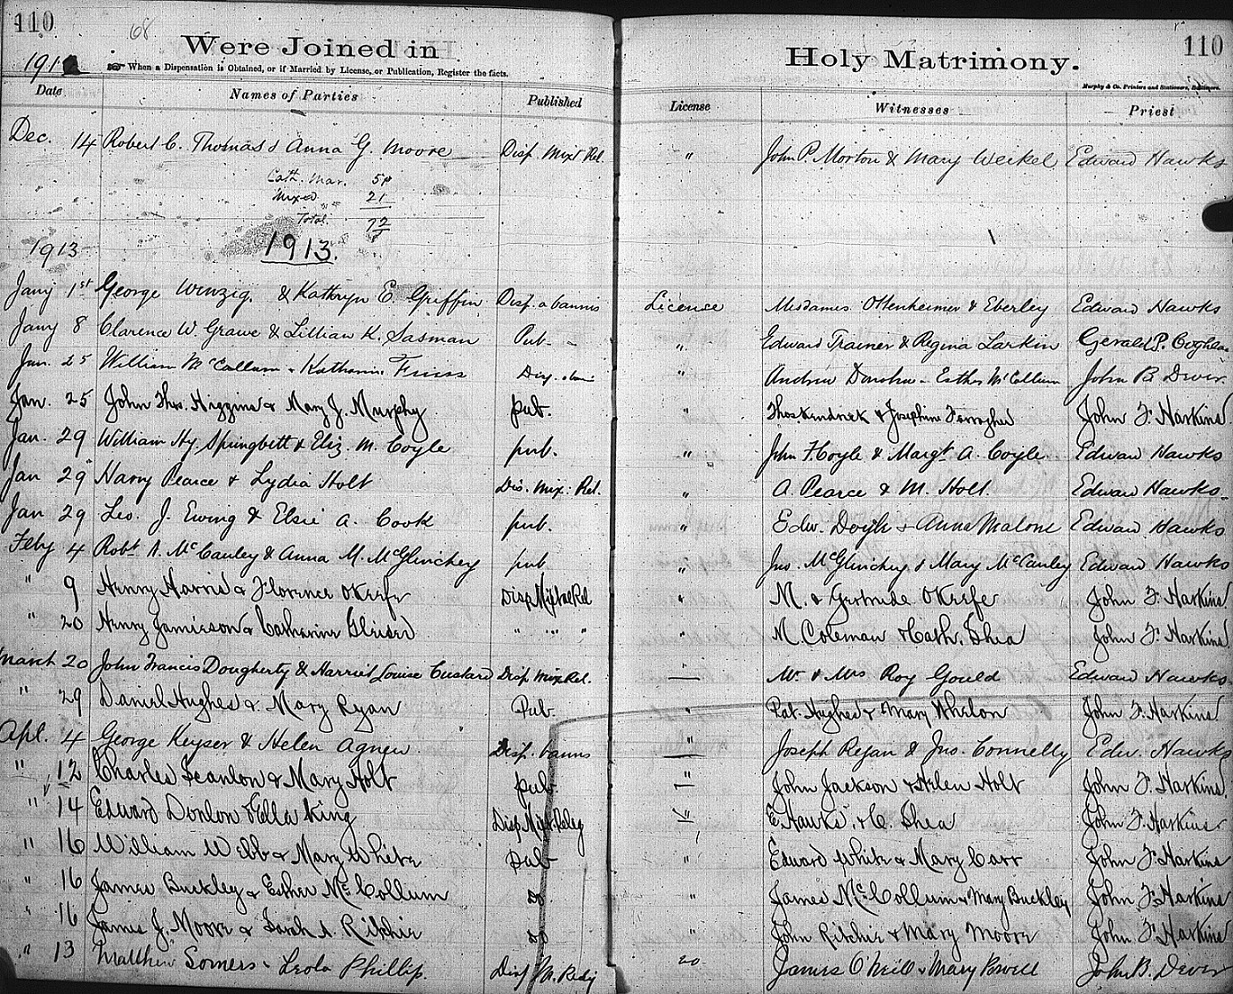 110 68 110
Were Joined in Holy Matrimony.
191
When a Dispensation is Obtained, or if Married by License, or Publication, Register the facts.
Murphy & Co. Printers and Stationers, Baltimore.
Date Names of Parties Published License Witnesses Priest
Dec. 14 Robert C. Thomas & Anna G. Moore Disp. Mixt Rel. " John P. Morton & Mary Weikel Edward Hawks
Cath. Mar. 51
Mixed 21
Total 72
1913 1913.
Jany 1st George Winzig & Kathryn E. Griffin Disp. a bannis License Mesdames Ottenheimer & Eberley Edward Hawks
Jany 8 Clarence W. Grawe & Lillian K. Sasman Pub. " Edward Trainer & Regina Larkin Gerald P. Coghlan
Jan. 25 William McCallum & Katharine Disp. " Andrew Donohue & Esther McCollum John B. Dever.
Jan. 25 John Thos. Higgins & Mary J. Murphy pub. " Thos Kendrick & Josephine Farragher John F. Harkins
Jan. 29 William Hy. Springbett & Eliz. M. Coyle pub. " John F Coyle & Margt. A. Coyle Edward Hawks
Jan 29 Harry Pearce & Lydia Holt Dis. Mix: Rel. " A. Pearce & M. Holt. Edward Hawks
Jan 29 Leo. J. Ewing & Elsie A. Cook pub. " Edw. Doyle & Anna Malone Edward Hawks
Feby 4 Robt A. McCauley & Anna M. McGlinchey pub " Jno. McGlinchey & Mary McCauley Edward Hawks
" 9 Henry Harris & Florence OKeefe Disp Mixtae Rel " M. & Gertrude OKeefe John F. Harkins
" 20 Henry Jamieson & Catharine " " " " M. Coleman & Cath. Shea John F. Harkins
March 20 John Francis Dougherty & Harriet Louise Custard Disp. Mix Rel. — Mr & Mrs Roy Gould Edward Hawks
" 29 Daniel Hughes & Mary Ryan Pub. " Pat. Hughes & Mary Whelon John F. Harkins
Apl. 4 George Keyser & Helen Agnew Disp. banns " Joseph Regan & Jno. Connelly Edw. Hawks
" 12 Charles Scanlon & Mary Holt pub. " John Jackson & Helen Holt John F. Harkins
" 14 Edward Donlon & Ella King Disp Mixt. Relig " E. Hawks & C. Shea John F. Harkins
" 16 William Webb & Mary White pub " Edward White & Mary Carr John F. Harkins
" 16 James Buckley & Esther McCollum do " James McCollum & Mary Buckley John F. Harkins
" 16 James J. Moore & Sarah A Ritchie do " John Ritchie & Mary Moore John F. Harkins
" 13 Matthew Somers & Leola Phillip. Disp M. Relig do James O'Neill & Mary Powell John B. Dever